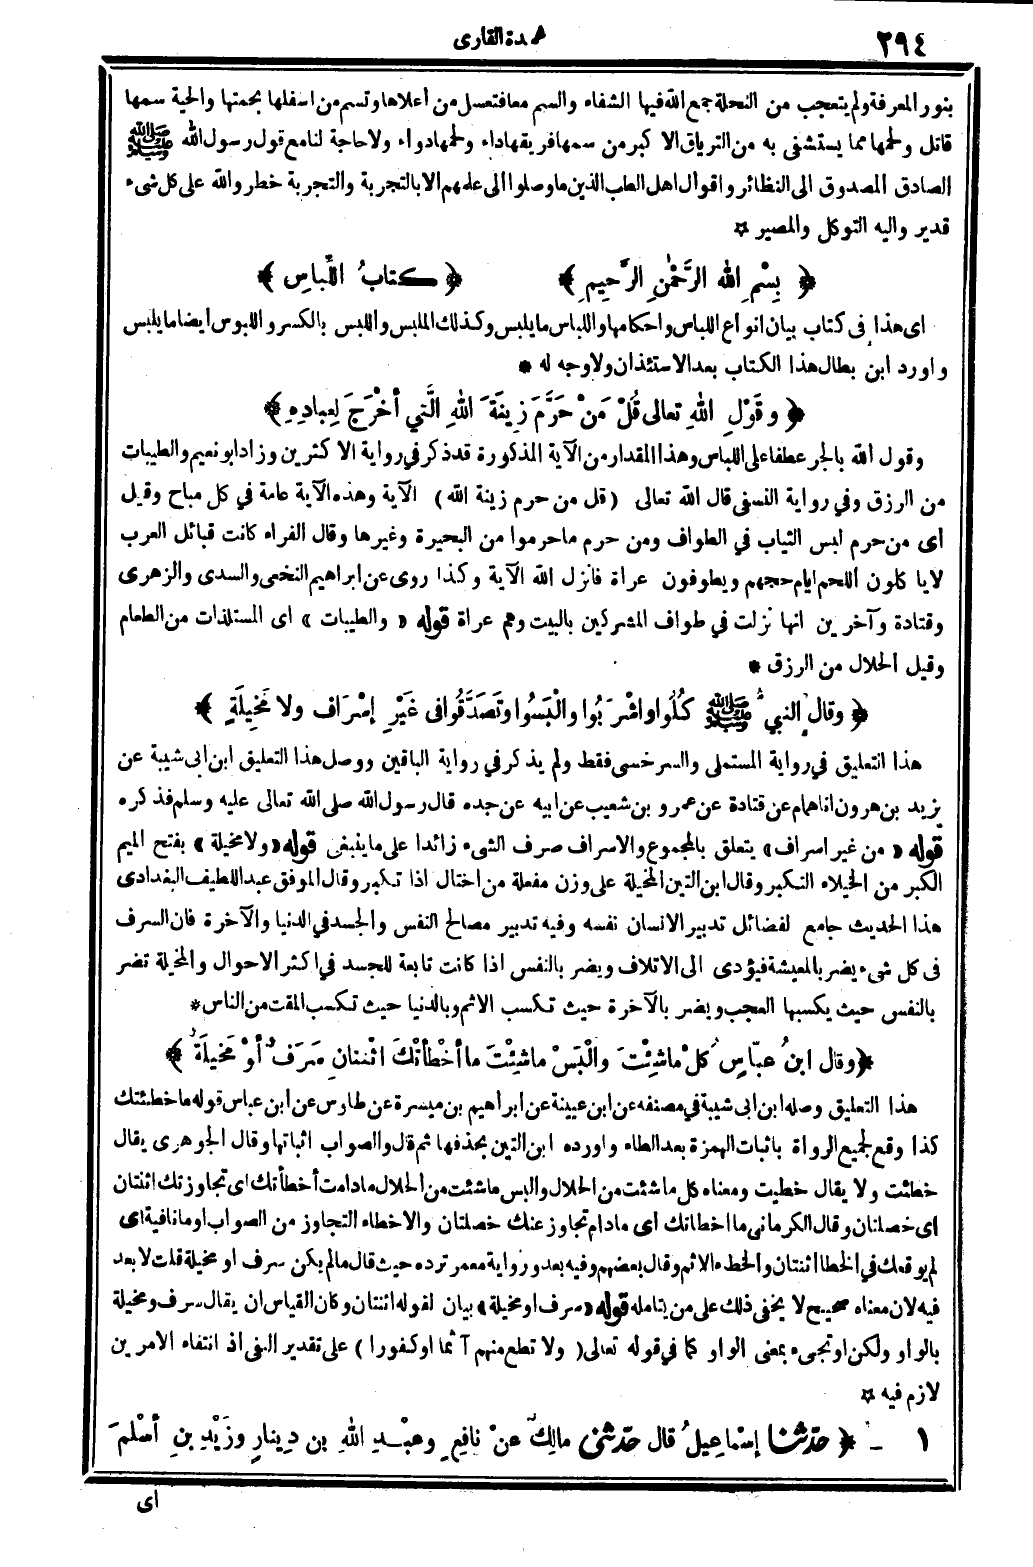 ٢٩٤
عمدة القارى
بنور المعرفة ولم يتعجب من النحلة جمع الله فيها الشفاء والسم معا فتعسل من أعلاها وتسم من اسفلها بحمتها والحية سمها
قاتل ولحمها مما يستشفى به من الترياق الاكبر من سمها فريقها داء ولحمها دواء ولا حاجة لنا مع قول رسول الله ﷺ
الصادق المصدوق الى النظائر واقوال اهل الطب الذين ما وصلوا الى علمهم الا بالتجربة والتجربة خطر والله على كل شىء
قدير واليه التوكل والمصير ☆
﴿ بِسْمِ اللهِ الرَّحْمٰنِ الرَّحِيمِ ﴾ ﴿ كتابُ اللِّباسِ ﴾
اى هذا فى كتاب بيان انواع اللباس واحكامها واللباس ما يلبس وكذلك الملبس واللبس بالكسر واللبوس أيضا ما يلبس
واورد ابن بطال هذا الكتاب بعد الاستئذان ولا وجه له *
﴿ وقَوْلِ اللهِ تعالى قُلْ مَنْ حَرَّمَ زِينَةَ اللهِ الَّتي أخْرَجَ لِعِبادِهِ ﴾
وقول الله بالجر عطفا على اللباس وهذا المقدار من الآية المذكورة قد ذكر في رواية الاكثرين وزاد ابو نعيم والطيبات
من الرزق وفي رواية النسفى قال الله تعالى (قل من حرم زينة الله) الآية وهذه الآية عامة في كل مباح وقيل
أى من حرم لبس الثياب في الطواف ومن حرم ما حرموا من البحيرة وغيرها وقال الفراء كانت قبائل العرب
لا ياكلون اللحم ايام حجهم ويطوفون عراة فانزل الله الآية وكذا روى عن ابراهيم النخعى والسدى والزهرى
وقتادة وآخرين انها نزلت في طواف المشركين بالبيت وهم عراة قوله «والطيبات» اى المستلذات من الطعام
وقيل الحلال من الرزق *
﴿ وقال النبيُّ ﷺ كُلُوا واشْرَبُوا والْبَسُوا وتَصَدَّقُوا فى غَيْرِ إسْرَافٍ ولا مَخِيلَةٍ ﴾
هذا التعليق في رواية المستملى والسرخسى فقط ولم يذكر في رواية الباقين ووصل هذا التعليق ابن ابى شيبة عن
يزيد بن هرون انا همام عن قتادة عن عمرو بن شعيب عن ابيه عن جده قال رسول الله صلى الله تعالى عليه وسلم فذكره
قوله «من غير اسراف» يتعلق بالمجموع والاسراف صرف الشىء زائدا على ما ينبغى قوله «ولا مخيلة» بفتح الميم
الكبر من الخيلاء التكبر وقال ابن التين المخيلة على وزن مفعلة من اختال اذا تكبر وقال الموفق عبد اللطيف البغدادى
هذا الحديث جامع لفضائل تدبير الانسان نفسه وفيه تدبير مصالح النفس والجسد في الدنيا والآخرة فان السرف
فى كل شىء يضر بالمعيشة فيؤدى الى الاتلاف ويضر بالنفس اذا كانت تابعة للجسد في اكثر الاحوال والمخيلة تضر
بالنفس حيث يكسبها العجب ويضر بالآخرة حيث تكسب الاثم وبالدنيا حيث تكسب المقت من الناس *
﴿ وقال ابنُ عبّاسٍ كُلْ ما شِئْتَ والْبَسْ ما شِئْتَ ما أخْطَأتْكَ اثْنتانِ سَرَفٌ أوْ مَخِيلَةٌ ﴾
هذا التعليق وصله ابن ابى شيبة في مصنفه عن ابن عيينة عن ابراهيم بن ميسرة عن طاوس عن ابن عباس قوله ما خطئتك
كذا وقع لجميع الرواة باثبات الهمزة بعد الطاء واورده ابن التين بحذفها ثم قال والصواب اثباتها وقال الجوهرى يقال
خطئت ولا يقال خطيت ومعناه كل ما شئت من الحلال والبس ما شئت من الحلال مادامت أخطأتك اى تجاوزتك اثنتان
اى خصلتان وقال الكرمانى ما اخطاتك اى مادام تجاوز عنك خصلتان والاخطاء التجاوز من الصواب او ما نافية اى
لم يوقعك في الخطا اثنتان والخطء الاثم وقال بعضهم وفيه بعد ورواية معمر ترده حيث قال ما لم يكن سرف او مخيلة قلت لا بعد
فيه لان معناه صحيح لا يخفى ذلك على من يتامله قوله «سرف او مخيلة» بيان لقوله اثنتان وكان القياس ان يقال سرف ومخيلة
بالواو ولكن او تجىء بمعنى الواو كما في قوله تعالى (ولا تطع منهم آثما او كفورا) على تقدير النفى اذ انتفاء الامرين
لازم فيه ☆
١ - ﴿ حدّثنا إسْماعِيلُ قال حدّثنى مالِكٌ عنْ نافِعٍ وعبْدِ اللهِ بن دِينارٍ وزَيْدِ بنِ أسْلَمَ
اى